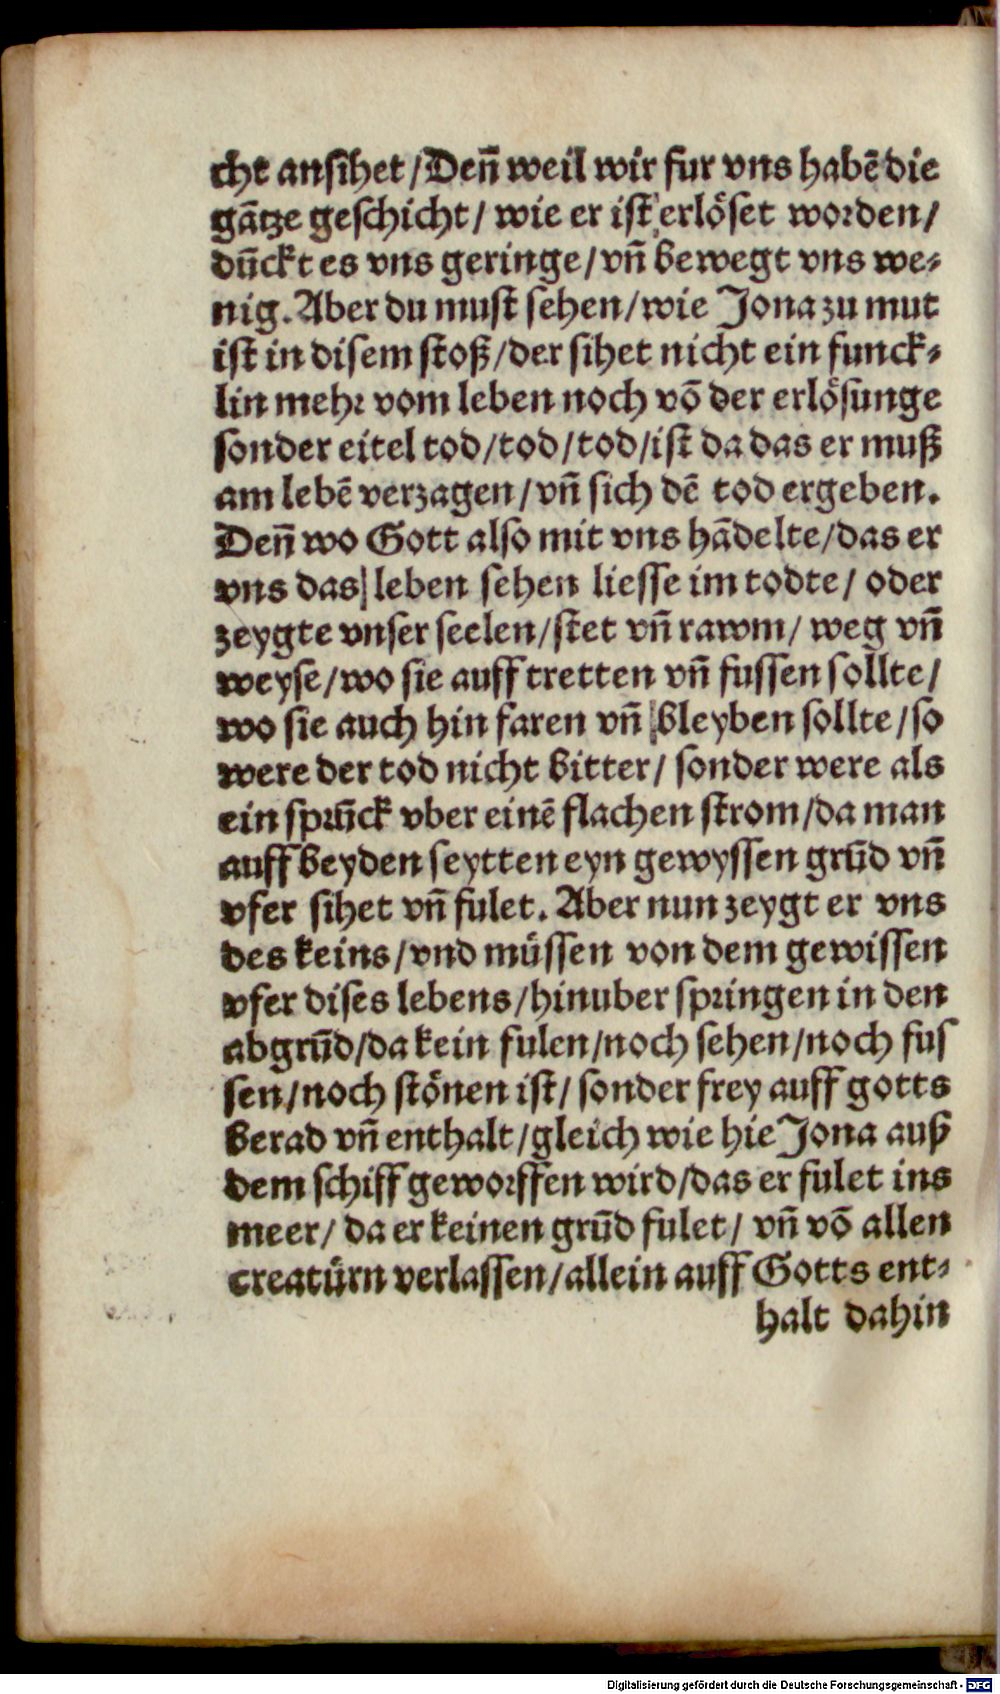 cht ansihet / Deñ weil wir fur vns habẽ die
gãtze geschicht / wie er ist erlöset worden /
dũckt es vns geringe / vñ bewegt vns we-
nig. Aber du must sehen / wie Jona zu mut
ist in disem stoß / der sihet nicht ein funck-
lin mehr vom leben noch võ der erlösunge
sonder eitel tod / tod / tod / ist da das er muß
am lebẽ verzagen / vñ sich dẽ tod ergeben.
Deñ wo Gott also mit vns hãdelte / das er
vns das leben sehen liesse im todte / oder
zeygte vnser seelen / stet vñ rawm / weg vñ
weyse / wo sie auff tretten vñ fussen sollte /
wo sie auch hin faren vñ bleyben sollte / so
were der tod nicht bitter / sonder were als
ein sprũck vber einẽ flachen strom / da man
auff beyden seytten eyn gewyssen grũd vñ
vfer sihet vñ fulet. Aber nun zeygt er vns
des keins / vnd müssen von dem gewissen
vfer dises lebens / hinuber springen in den
abgrũd / da kein fulen / noch sehen / noch fus
sen / noch stönen ist / sonder frey auff gotts
berad vñ enthalt / gleich wie hie Jona auß
dem schiff geworffen wird / das er fulet ins
meer / da er keinen grũd fulet / vñ võ allen
creatürn verlassen / allein auff Gotts ent-
halt dahin
Digitalisierung gefördert durch die Deutsche Forschungsgemeinschaft - DFG